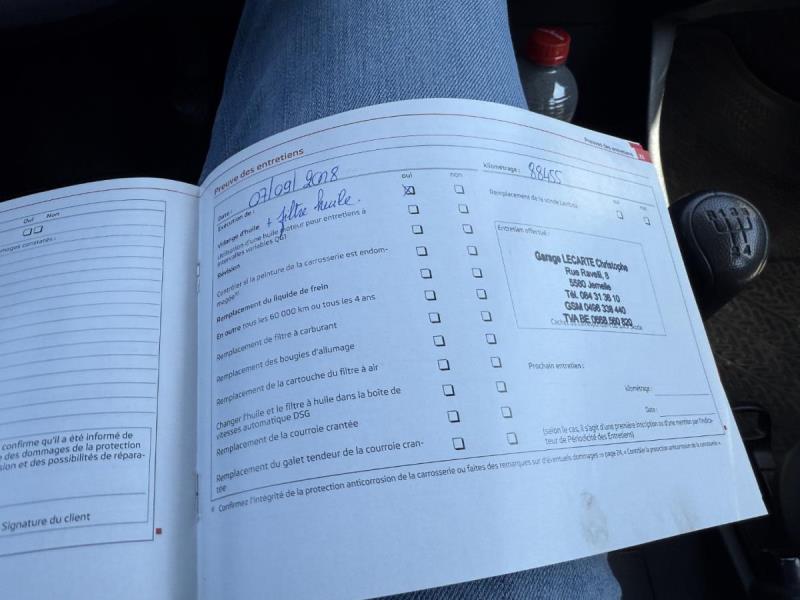 Oui Non
mages constatés :
confirme qu'il a été informé de
des dommages de la protection
sion et des possibilités de répara-
Signature du client
Preuve des entretiens
Date : 07/09/2018
Exécution de :
oui non
Vidange d'huile + filtre huile.
Utilisation d'une huile moteur pour entretiens à
intervalles variables QG1
Révision
Contrôler si la peinture de la carrosserie est endom-
magée
Remplacement du liquide de frein
En outre tous les 60 000 km ou tous les 4 ans
Remplacement de filtre à carburant
Remplacement des bougies d'allumage
Remplacement de la cartouche du filtre à air
Changer l'huile et le filtre à huile dans la boîte de
vitesses automatique DSG
Remplacement de la courroie crantée
Remplacement du galet tendeur de la courroie cran-
tée
Preuves des entretiens
kilométrage : 88455
Remplacement de la sonde Lambda
oui non
Entretien effectué :
Garage LECARTE Christophe
Rue Ravelli, 8
5580 Jemelle
Tél. 084 31 36 10
GSM 0498 338 440
TVA BE 0668.560 820
Prochain entretien :
kilométrage :
Date :
(selon le cas, il s'agit d'une première inscription ou d'une mention par l'indica-
teur de Périodicité des Entretiens)
Confirmez l'intégrité de la protection anticorrosion de la carrosserie ou faites des remarques sur d'éventuels dommages ⇒ page 24, « Contrôle la protection anticorrosion de la carrosserie ».